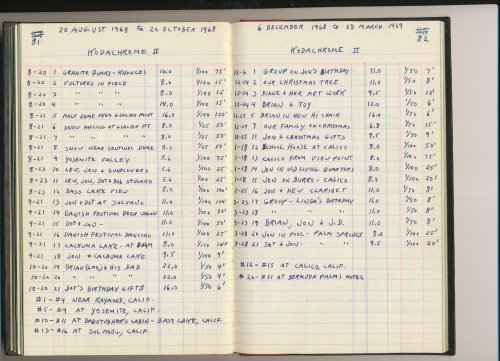 20 AUGUST 1968 to 20 OCTOBER 1968
81
KODACHROME II
8-20 1 GRANITE QUARY-KNOWLES 16.0 1/100 75'
8-20 2 VULTURES IN FIELD 8.0 1/100 100'
8-20 3 " " " 8.0 1/100 100'
8-20 4 " " " 14.0 1/100 15'
8-21 5 HALF DOME FROM GLACIER POINT 16.0 1/100 100'
8-21 6 SNOW PACKING AT GLACIER PT 8.0 1/25 50'
8-21 7 " " " " 8.0 1/25 50'
8-21 8 SNOW NEAR SENTINEL DOME 8.0 1/25 50'
8-21 9 YOSEMITE VALLEY 5.6 1/100 75'
8-23 10 LEW, JON & SUNFLOWERS 5.6 1/100 25'
8-23 11 LEW, JON, DOT & BOB STUGARD 5.6 1/100 25'
8-23 12 BASS LAKE VIEW 8.0 1/100 100'
9-21 13 JON & DOT AT SOLVANG 11.0 1/100
9-21 14 DANISH FESTIVAL BEER WAGON 11.0 1/100
9-21 15 DOT & JON 11.0 1/100 50'
9-21 16 DANISH FESTIVAL DANCING 11.0 1/100 25'
9-21 17 CACHUMA LAKE - AT DAM 8.0 1/100
9-21 18 JON & CACHUMA LAKE 9.5 1/100 9'
10-20 19 BRIAN (6MO) & HIS DAD 22.0 1/50 4'
10-20 20 " " " " 22.0 1/50 4'
10-20 21 DOT'S BIRTHDAY GIFTS 16.0 1/50 6'
#1-#4 NEAR RAYMOND, CALIF.
#5-#9 AT YOSEMITE, CALIF.
#10-#11 AT CABIN - BASS LAKE, CALIF.
#13-#16 AT SOLVANG, CALIF.
6 DECEMBER 1968 to 28 MARCH 1969
82
KODACHROME II
12-6 1 GROUP ON JON'S BIRTHDAY 11.0 1/50 7'
12-24 2 OUR CHRISTMAS TREE 11.0 1/50 8'
12-24 3 DIANE & HER ART WORK 9.5 1/50 12'
12-24 4 BRIAN & TOY 12.0 1/50 6'
12-25 5 BRIAN IN NEW HI CHAIR 16.0 1/50 6'
12-25 7 OUR FAMILY ON CHRISTMAS 6.8 1/50 15'
12-25 11 JON & CHRISTMAS GIFTS 9.5 1/50 9'
1-18 12 SCHOOL HOUSE AT CALICO 8.0 1/100 50'
1-18 13 CALICO FROM VIEW POINT 8.0 1/100 75'
1-18 14 JON IN OLD LIVING QUARTERS 8.0 1/100 25'
1-18 15 JON ON BURRO - CALICO 8.0 1/100 20'
2-25 16 JON & NEW CLARINET 11.0 1/50 8'
3-23 17 GROUP - LINDA'S BIRTHDAY 11.0 1/50 8'
3-23 18 " " " 11.0 1/50 8'
3-23 19 BRIAN, JON & J.D. 11.0 1/50 8'
3-28 20 JON IN POOL - PALM SPRINGS 8.0 1/100 25'
3-28 21 DOT & JON " " 9.5 1/100 20'
#12-#15 AT CALICO, CALIF.
#20-#21 AT BERMUDA PALMS MOTEL